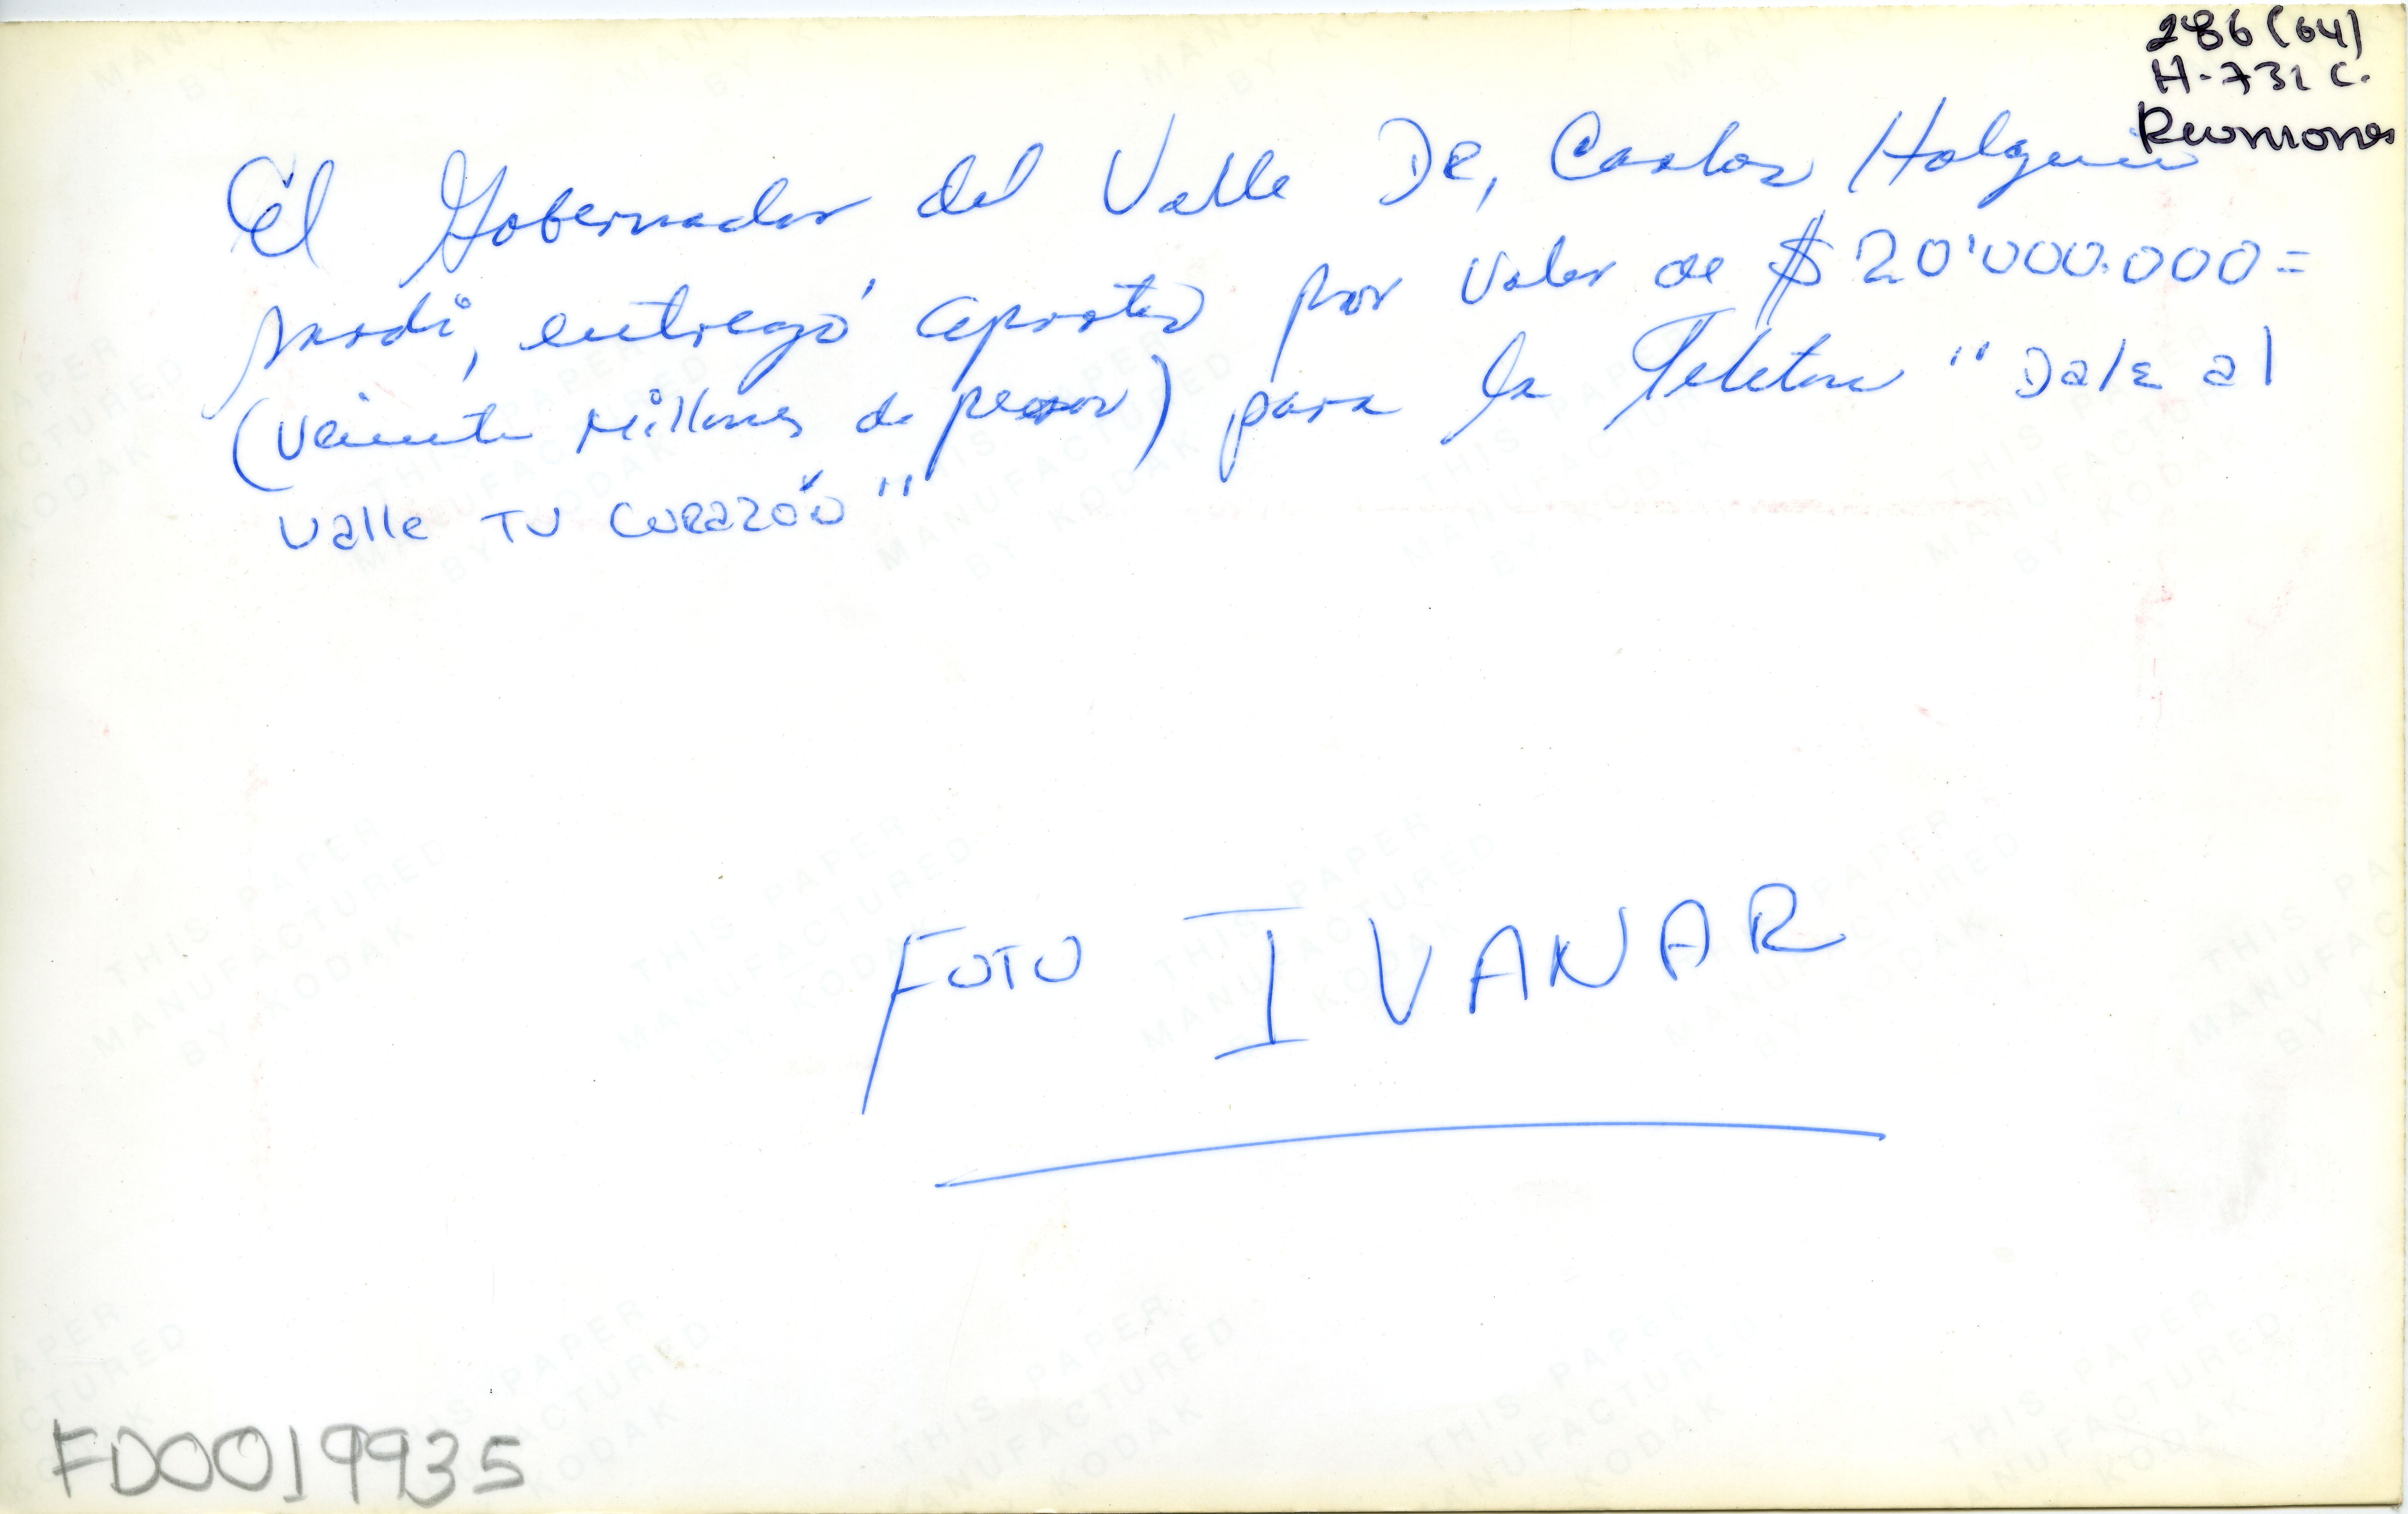 286 (64)
H-731 C.
Reuniones
El Gobernador del Valle De, Carlos Holguin
Sardi, entregó aportes por valor de $20'000.000=
(veinte Millones de pesos) para la Teleton "Dale al
Valle TU CORAZÓN"
FOTO IVANAR
FD0019935
THIS PAPER
MANUFACTURED
BY KODAK